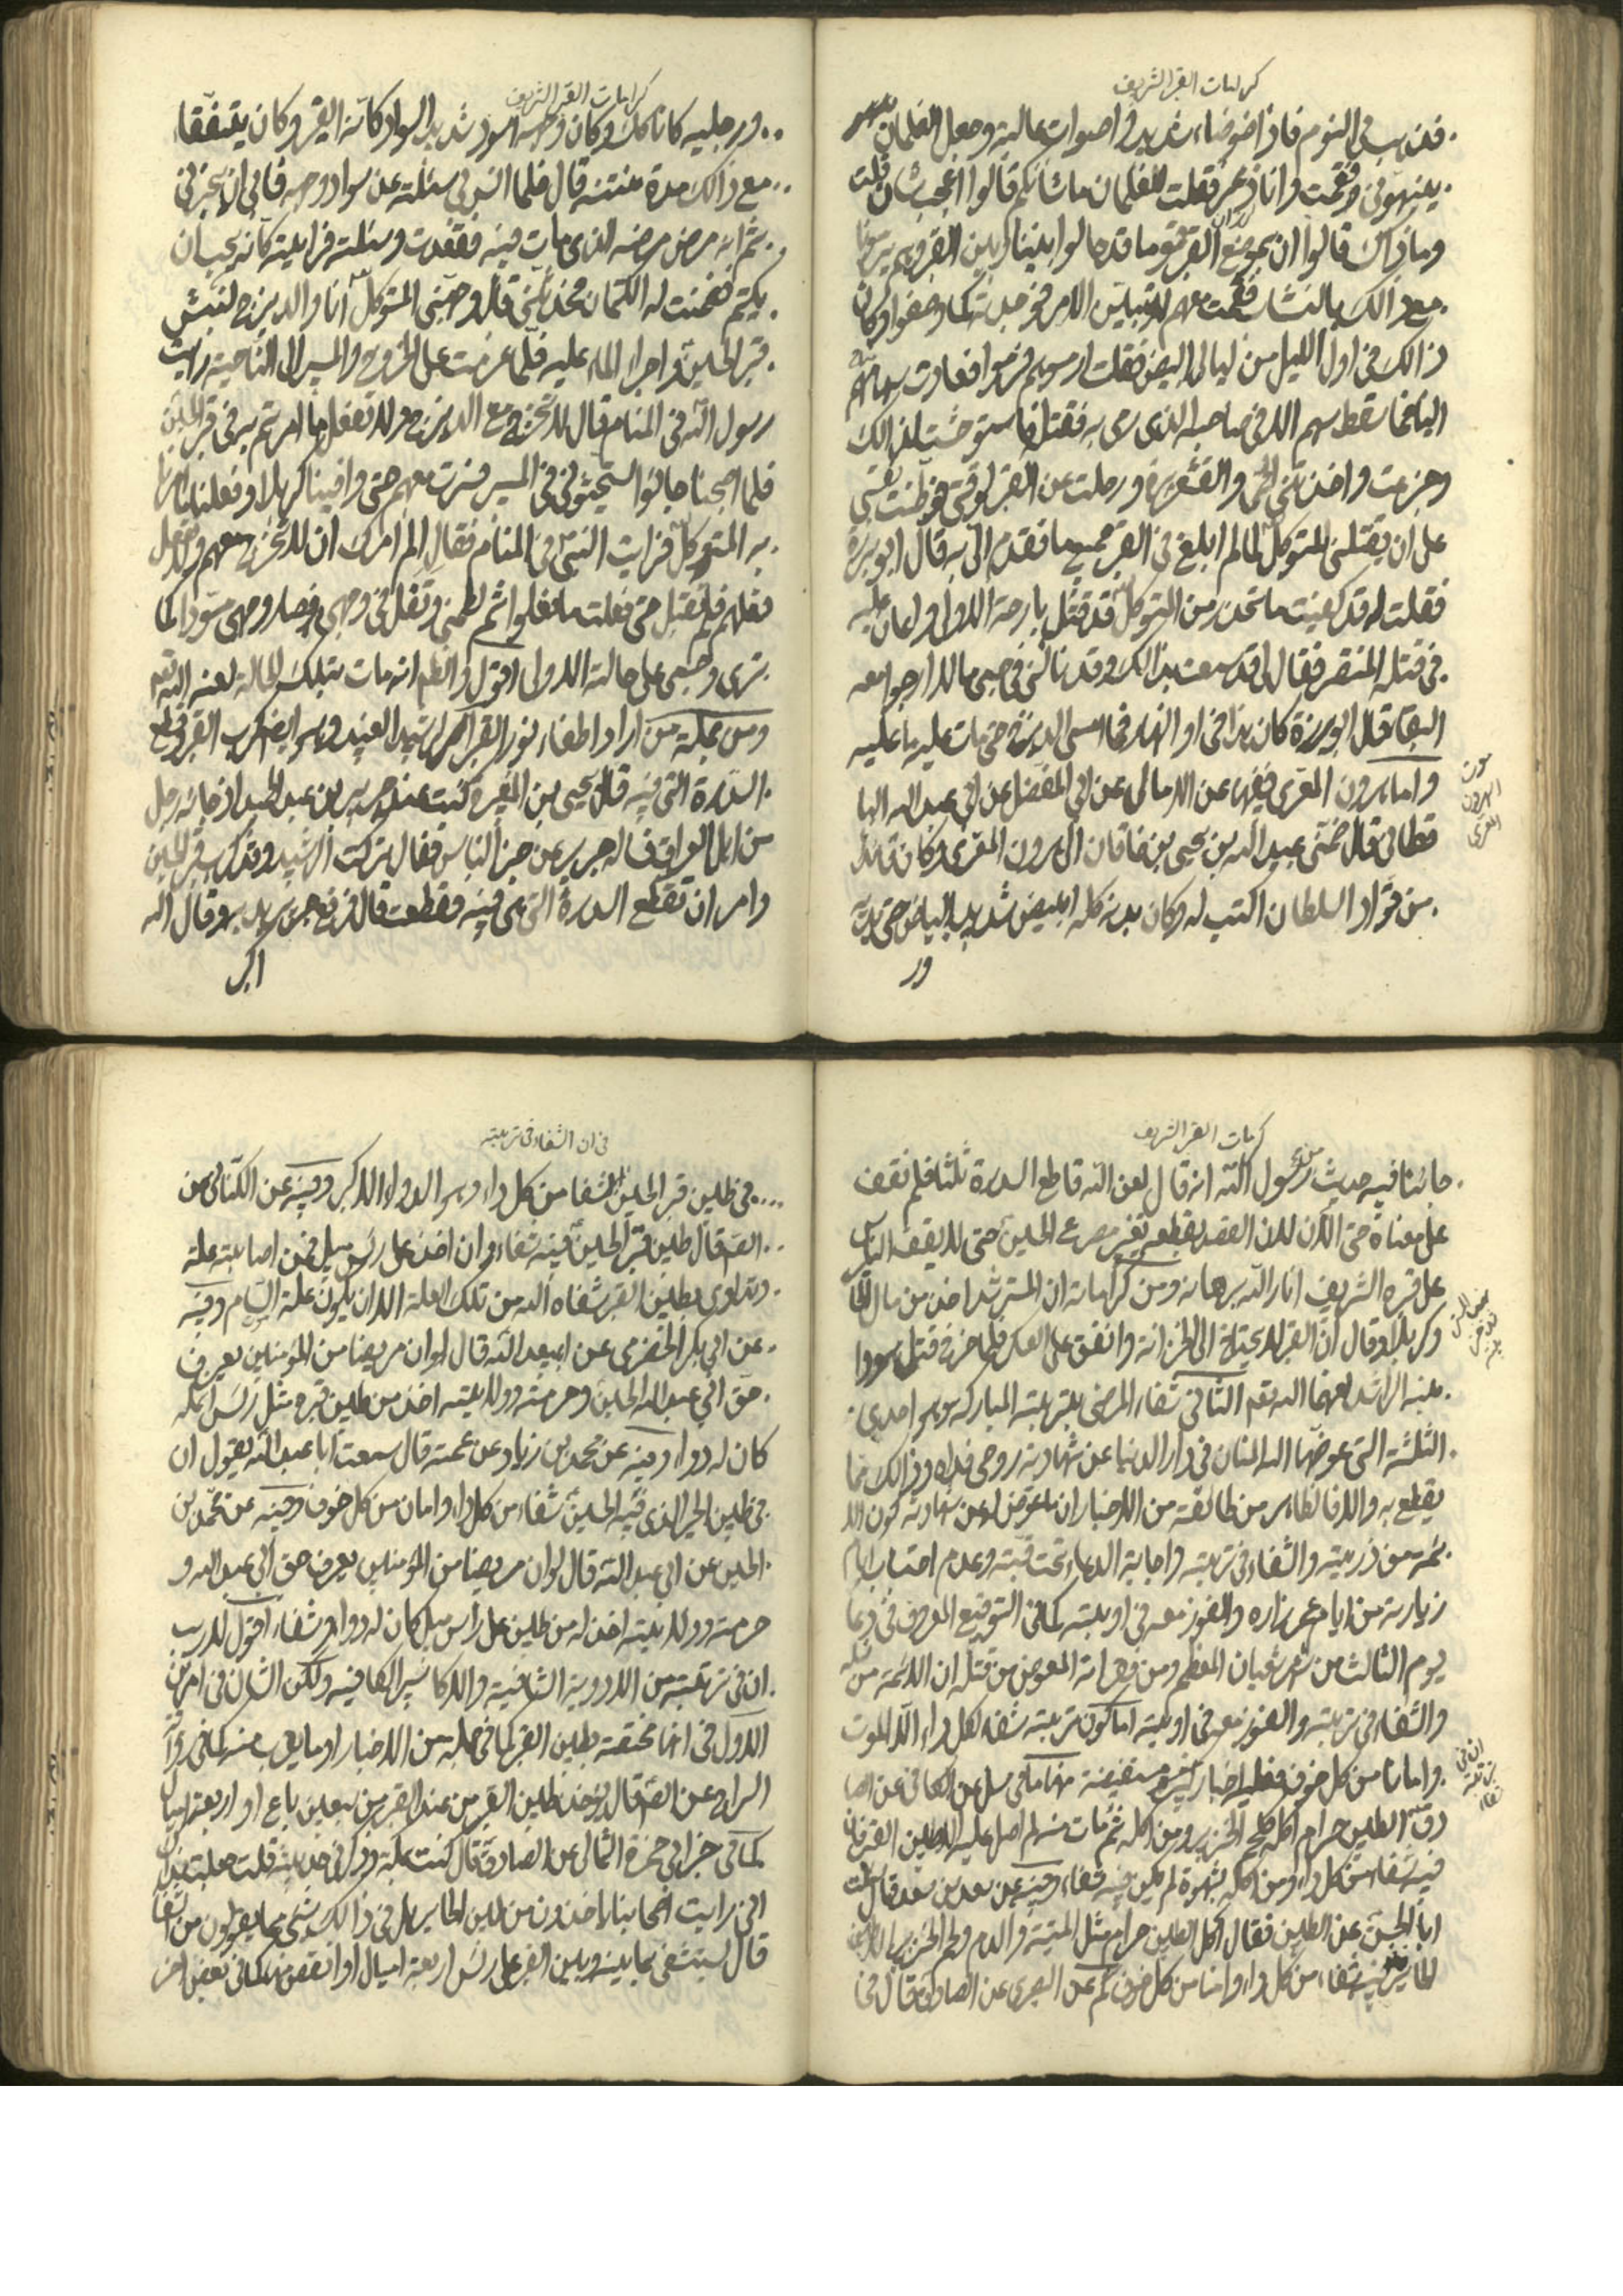 كرامات القبر الشريف
فذهب بي النوم فاذا ضوضاء شديدة واصوات عالية وجعل الغلمان
ينبهوني فقمت وانا ذعر فقلت للغلمان ما شانكم قالوا اعجب شان قلت
وما ذاك قالوا ان بموضع القبر قوما قد حالوا بيننا وبين القبر وهم يرموننا
مع ذالك بالنشاب فقمت معهم لاتبين الامر فوجدته كما وصفوا وكان
ذالك في اول الليل من ليالي البيض فقلت ارموهم فرموا فعادت سهامهم
الينا فما سقط سهم الا في صاحبه الذي رمى به فقتله فاستوحشت لذالك
وجزعت واخذتني الحمى والقشعريرة ورحلت عن القبر لوقتي ووطنت نفسي
على ان يقتلني المتوكل لما لم ابلغ في القبر جميع ما تقدم الي به قال ابو برزة
فقلت له قد كفيت ما تحذر من المتوكل قد قتل بارحة الاولى واعان عليه
في قتله المنتصر فقال لي قد سمعت بذالك وقد نالني في جسمي ما لا ارجو معه
البقاء قال ابو برزة كان هذا في اول النهار فما امسى الديزج حتى مات عليه ما عليه
واما هرون المعري ففيها عن الامالي عن ابي المفضل عن ابي عبد الله البا
قطاني قال ضمني عبيد الله بن يحيى بن خاقان الى هرون المعري وكان قائدا
من قواد السلطان اكتب له وكان بدنه كله ابيض شديد البياض حتى يديه
ور
موت
الهرون
المعري
كرامات القبر الشريف
ورجليه كانا كك وكان وجهه اسود شديد السواد كانه القير وكان يتفقأ
مع ذالك مدة منتنة قال فلما انس بي سئلته عن سواد وجهه فابى ان يخبرني
ثم انه مرض مرضه الذي مات فيه فقعدت وسئلته فرايته كانه يحب ان
يكتم فضمنت له الكتمان فحدثني قال وجهني المتوكل انا والديزج لنبش
قبر الحسين واجراء الماء عليه فلما عزمت على الخروج والمسير الى الناحية رايت
رسول الله في المنام فقال لا تخرج مع الديزج ولا تفعل ما امرتم به في قبر الحسين
فلما اصبحنا جاؤا يستحثوني في المسير فسرت معهم حتى وافينا كربلا وفعلنا ما امرنا
به المتوكل فرايت النبي في المنام فقال الم امرك ان لا تخرج معهم ولا تفعل
فعلهم فلم تقبل حتى فعلت ما فعلوا ثم لطمني وتفل في وجهي فصار وجهي مسودا كما
ترى وجسمي على حالته الاولى اقول والظم انه مات بتلك الحالة لعنه الله تعم
ومن جملة من اراد اطفاء نور القبر الرشيد العنيد وهو ايضا كرب القبر وقطع
السدرة التي فيه قال يحيى بن المغيرة كنت عند جرير بن عبد الحميد اذ جائه رجل
من اهل العراق فساله جرير عن خبر الناس فقال تركت الرشيد وقد كرب قبر الحسين
وامر ان تقطع السدرة التي هي فيه فقطعت قال فرفع جرير يديه وقال الله
اكبر
كرامات القبر الشريف
جائنا فيه حديث من رسول الله انه قال لعن الله قاطع السدرة ثلثا فلم نقف
على معناه حتى الان لان القصد بقطعه تغير مصرع الحسين حتى لا يقف الناس
على قبره الشريف انار الله برهانه ومن كراماته ان المسترشد اخذ من مال الحائر
وكربلا وقال ان القبر لا يحتاج الى الخزانة وانفق على العسكر فلما خرج قتل هو و
ابنه الراشد لعنهما الله تعم الثاني شفاء المرضى بتربته المباركة وهو احدي
الثلثة التي عوضها الله المنان في دار الدنيا عن شهادته روحي فداه وذالك مما
يقطع به والا فالظاهر من طائفة من الاخبار ان ما عوض له عن شهادته كون الا
ئمة من ذريته والشفاء في تربته واجابة الدعاء تحت قبته وعدم احتساب ايام
زيارته من ايام عمر زاره والفوز معه في اوبته كما في التوقيع المعروف في دعا
يوم الثالث من شهر شعبان المعظم ومن فقراته المعوض من قتله ان الائمة من نسله
والشفاء في تربته والفوز معه في اوبته اما كون تربته شفاء لكل داء الا الموت
وامانا من كل خوف فعليه اخبار كثيرة مستفيضة منها ما في سل عن الكافي عن الصا
دق الطين حرام اكله كلحم الخنزير ومن اكله ثم مات منه لم اصل عليه الا طين القبر فان
فيه شفاء من كل داء ومن اكله بشهوة لم يكن فيه شفاء وفيه عن سعد بن سعد قال سئلت
ابا الحسن عن الطين فقال اكل الطين حرام مثل الميتة والدم ولحم الخنزير الا طين
الحائر فان فيه شفاء من كل داء وامنا من كل خوف كم عن البصري عن الصادق قال في
ان في
تربته
شفاء
في ان الشفاء في تربته
في طين قبر الحسين الشفا من كل داء وهو الدواء الاكبر وفيه عن الكناني عن
الصم قال طين قبر الحسين فيه شفاء وان اخذ على رأس ميل فمن اصابته علة
وتداوى بطين القبر شفاه الله من تلك العلة الا ان يكون علة السام وفيه
عن ابي بكر الحضرمي عن ابي عبد الله قال لو ان مريضا من المؤمنين يعرف
حق ابي عبد الله الحسين وحرمته وولايته اخذ من طين قبره مثل رأس انملة
كان له دواء وفيه عن محمد بن زياد عن عمته قال سمعت ابا عبد الله يقول ان
في طين الحير الذي فيه الحسين شفاء من كل داء وامان من كل خوف وفيه عن محمد بن
الحسين عن ابي عبد الله قال لو ان مريضا من المؤمنين يعرف حق ابي عبد الله و
حرمته وولايته اخذ له من طين على راس ميل كان له دواء وشفاء اقول لا ريب
ان في تربته من الادوية الشافية والاكاسير الكافية ولكن الشان في امرين
الاول في انها مختصة بطين القبر كما في جملة من الاخبار او ما يقرب منه كما في رواية
السراج عن الصم قال يؤخذ طين القبر من عند القبر من سبعين باع او اربعة اميال
كما في خبر ابي حمزة الثمالي عن الصادق قال كنت بمكة وذكر في حديثه قلت جعلت فداك
اني رايت اصحابنا ياخذون من طين الحائر هل في ذالك شيء مما يقولون من الشفا
قال يستشفى بما بينه وبين القبر على رأس اربعة اميال او انقص منه كما في بعض اخر